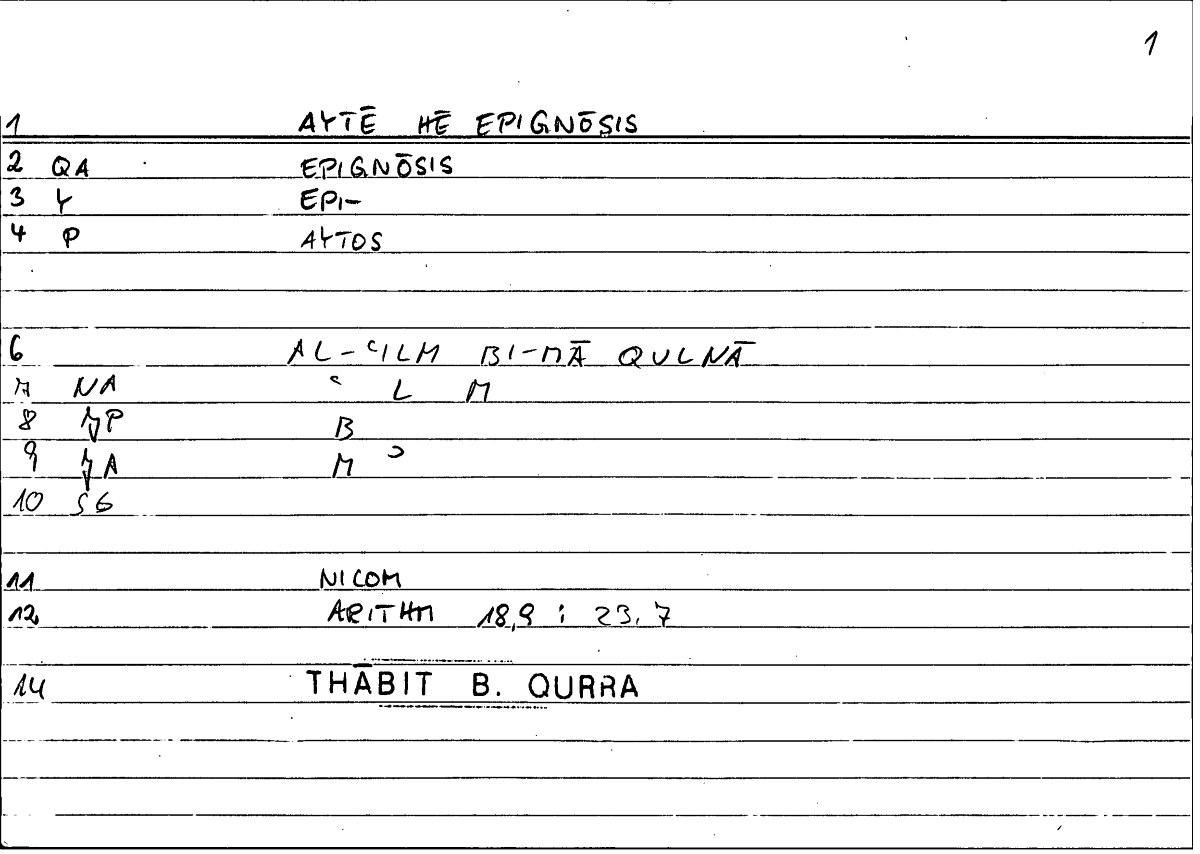 1
1 AYTĒ HĒ EPIGNŌSIS
2 QA EPIGNŌSIS
3 Y EPI-
4 P AYTOS
6 AL-ʿILM BI-MĀ QULNĀ
7 NA ʿ L M
8 P B
9 A M ʾ
10 SG
11 NICOM
12 ARITHM 18,9 ; 23,7
14 THĀBIT B. QURRA